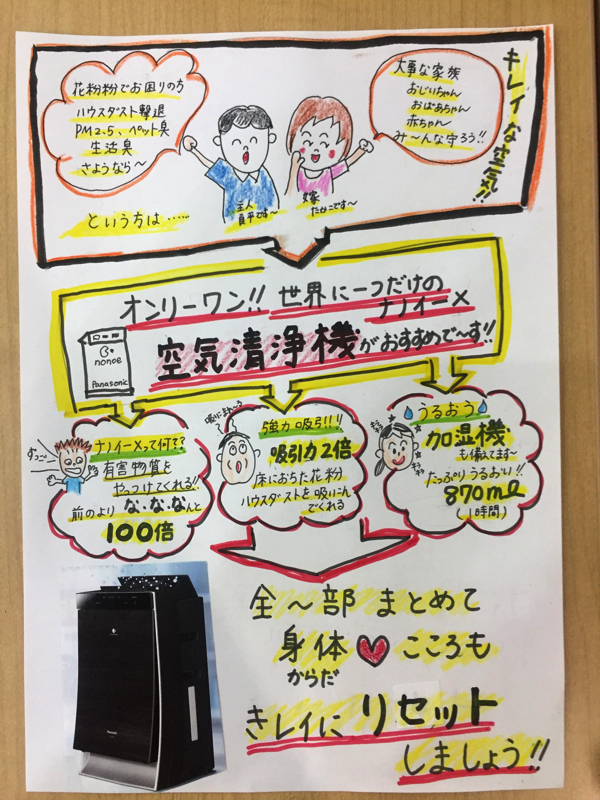 花粉粉でお困りの方
ハウスダスト撃退
PM2.5、ペット臭
生活臭
さようなら〜
大事な家族
おじいちゃん
おばあちゃん
赤ちゃん
み〜んな守ろう!!
キレイな空気!!
主人
貞平です〜
嫁
たかこです〜
という方は……
オンリーワン!! 世界に一つだけの
ナノイーX
空気清浄機がおすすめで〜す!!
nanoe
Panasonic
すっ〜
ナノイーXって何?
有害物質を
やっつけてくれる!!
前のより な、な、なんと
100倍
強力吸引!!!
吸引力2倍
床におちた花粉
ハウスダストを吸いこん
でくれる
うるおう
加湿機
も備えてます〜
たっぷりうるおい!!
870mℓ
(1時間)
全〜部まとめて
身体 こころも
からだ
キレイにリセット
しましょう!!